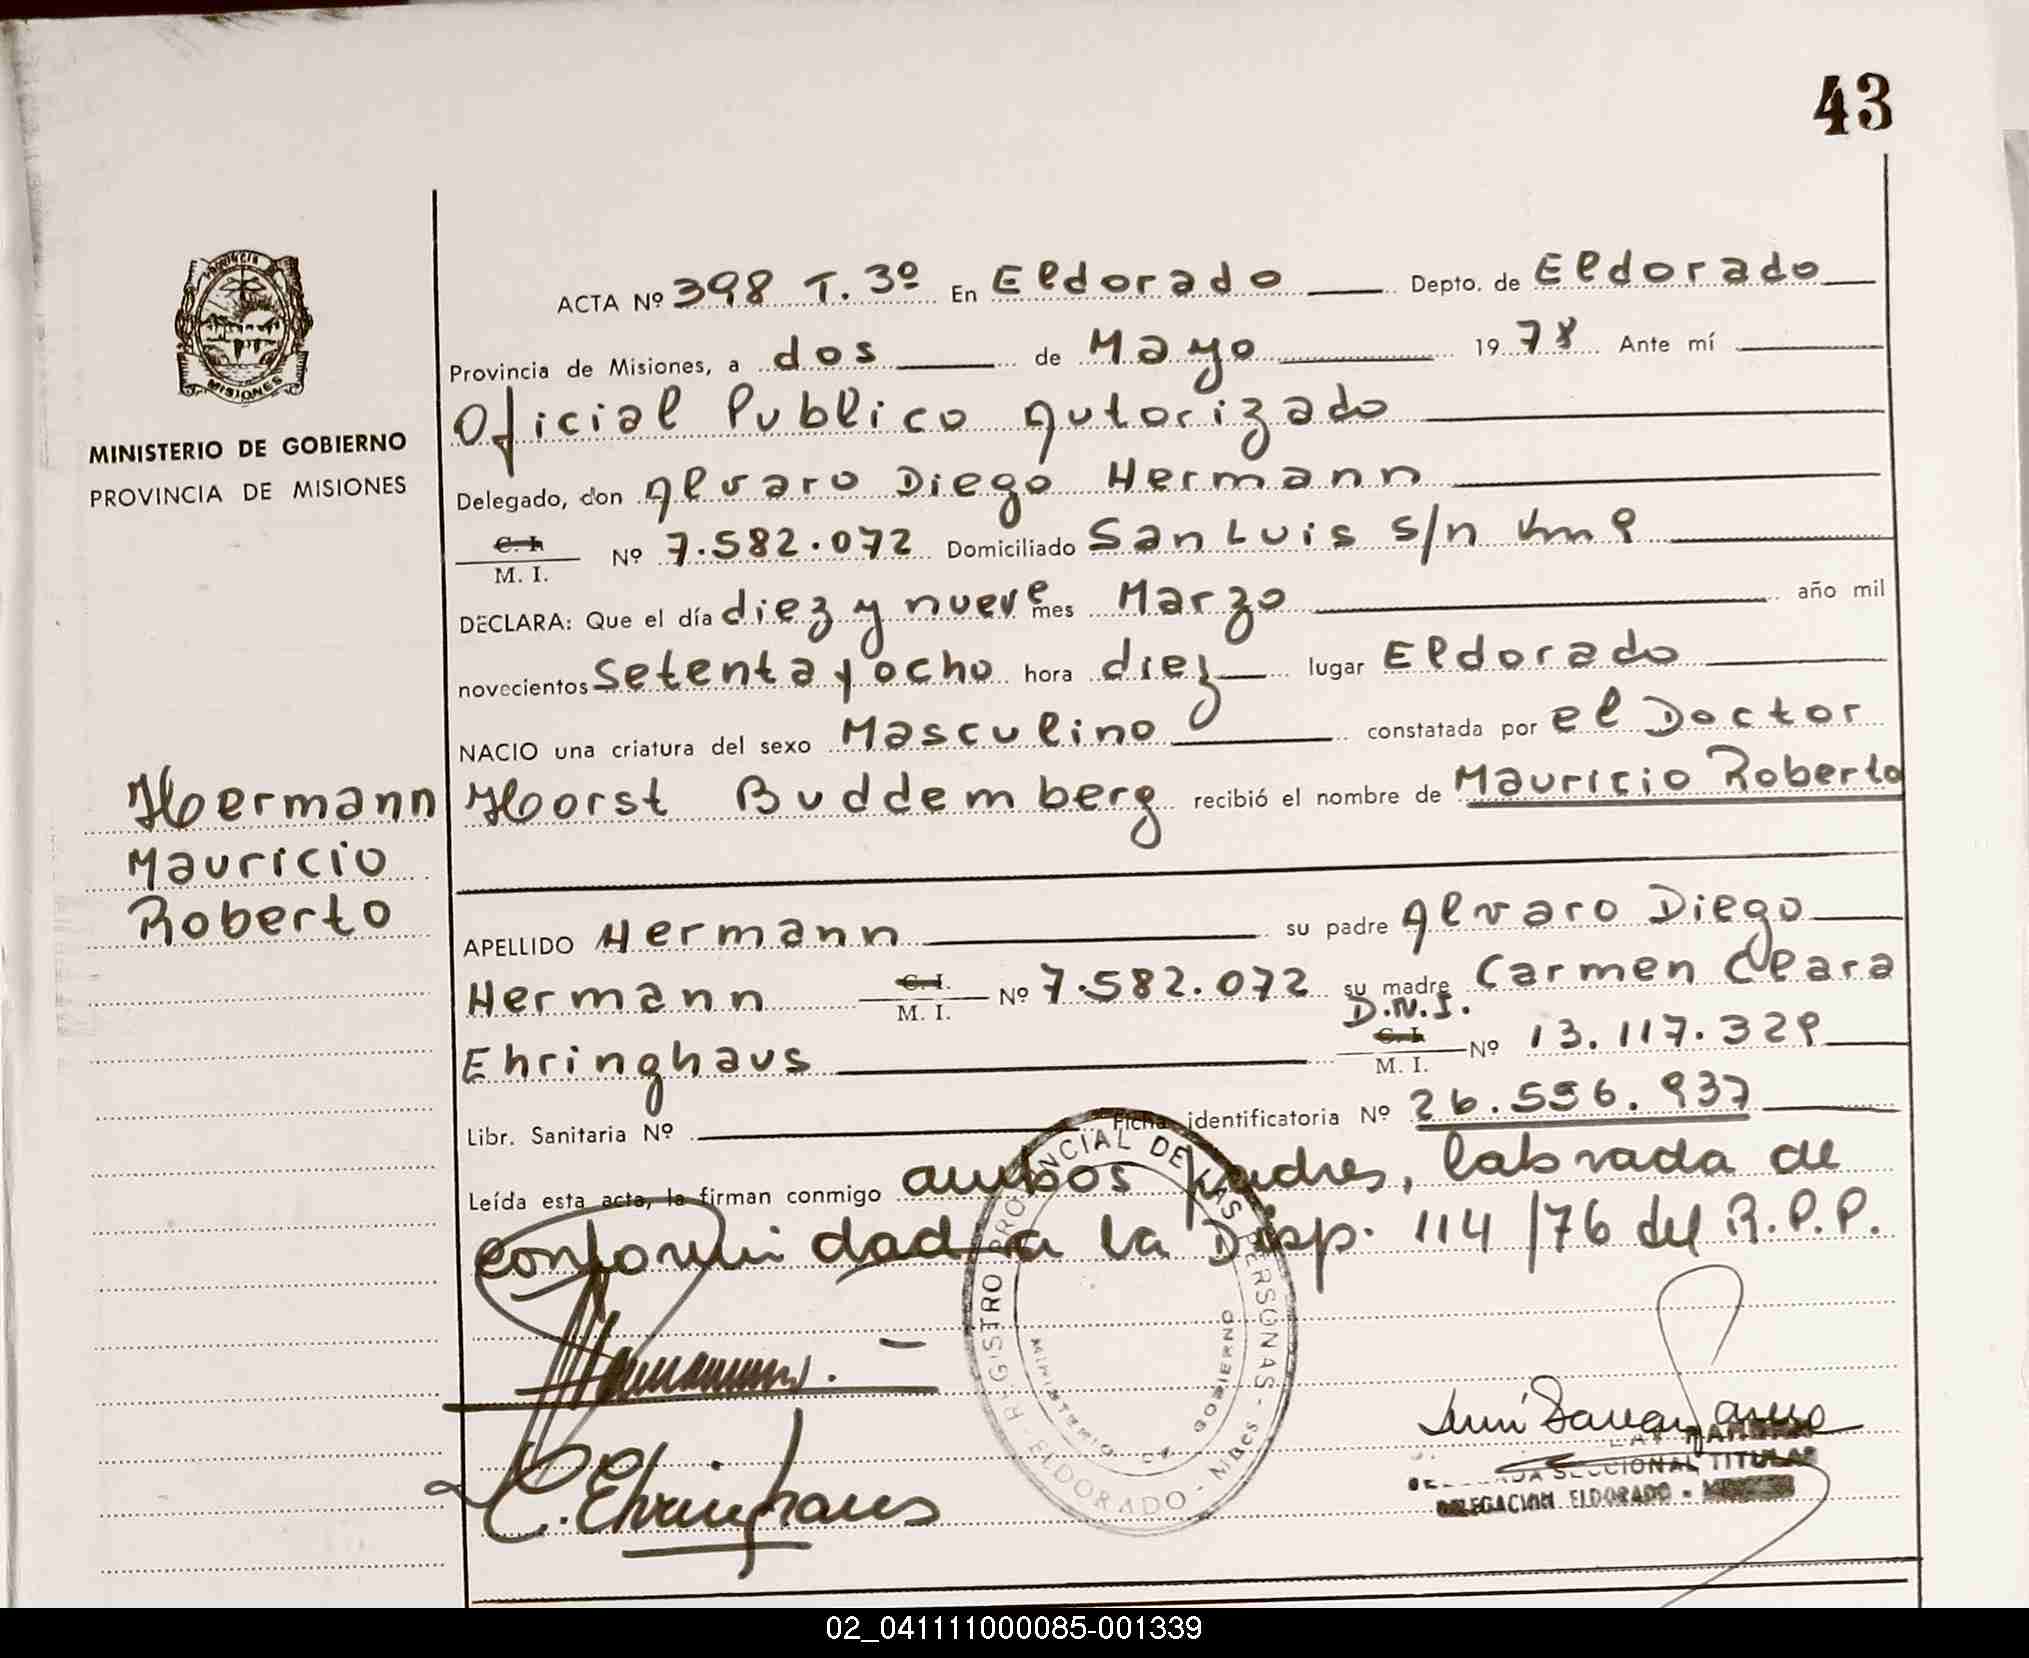 43
PROVINCIA
MISIONES
MINISTERIO DE GOBIERNO
PROVINCIA DE MISIONES
Hermann
Mauricio
Roberto
ACTA Nº 398 T. 3º En Eldorado Depto. de Eldorado
Provincia de Misiones, a dos de Mayo 1978 Ante mí
Oficial Publico Autorizado
Delegado, don Alvaro Diego Hermann
C. I. M. I. Nº 7.582.072 Domiciliado San Luis s/n km 9
DECLARA: Que el día diez y nueve mes Marzo año mil
novecientos setenta y ocho hora diez lugar Eldorado
NACIO una criatura del sexo Masculino constatada por el Doctor
Horst Buddemberg recibió el nombre de Mauricio Roberto
APELLIDO Hermann su padre Alvaro Diego
Hermann C. I. M. I. Nº 7.582.072 su madre Carmen Clara
Ehringhaus D.N.I. C. I. M. I. Nº 13.117.329
Libr. Sanitaria Nº Ficha identificatoria Nº 26.556.937
Leída esta acta, la firman conmigo ambos padres, labrada de
conformidad a la Disp. 114/76 del R.P.P.
REGISTRO PROVINCIAL DE LAS PERSONAS - ELDORADO - Mnes
MINISTERIO DE GOBIERNO
Hermann.
C. Ehringhaus
SECCIONAL TITULAR
DELEGACION ELDORADO -
02_041111000085-001339